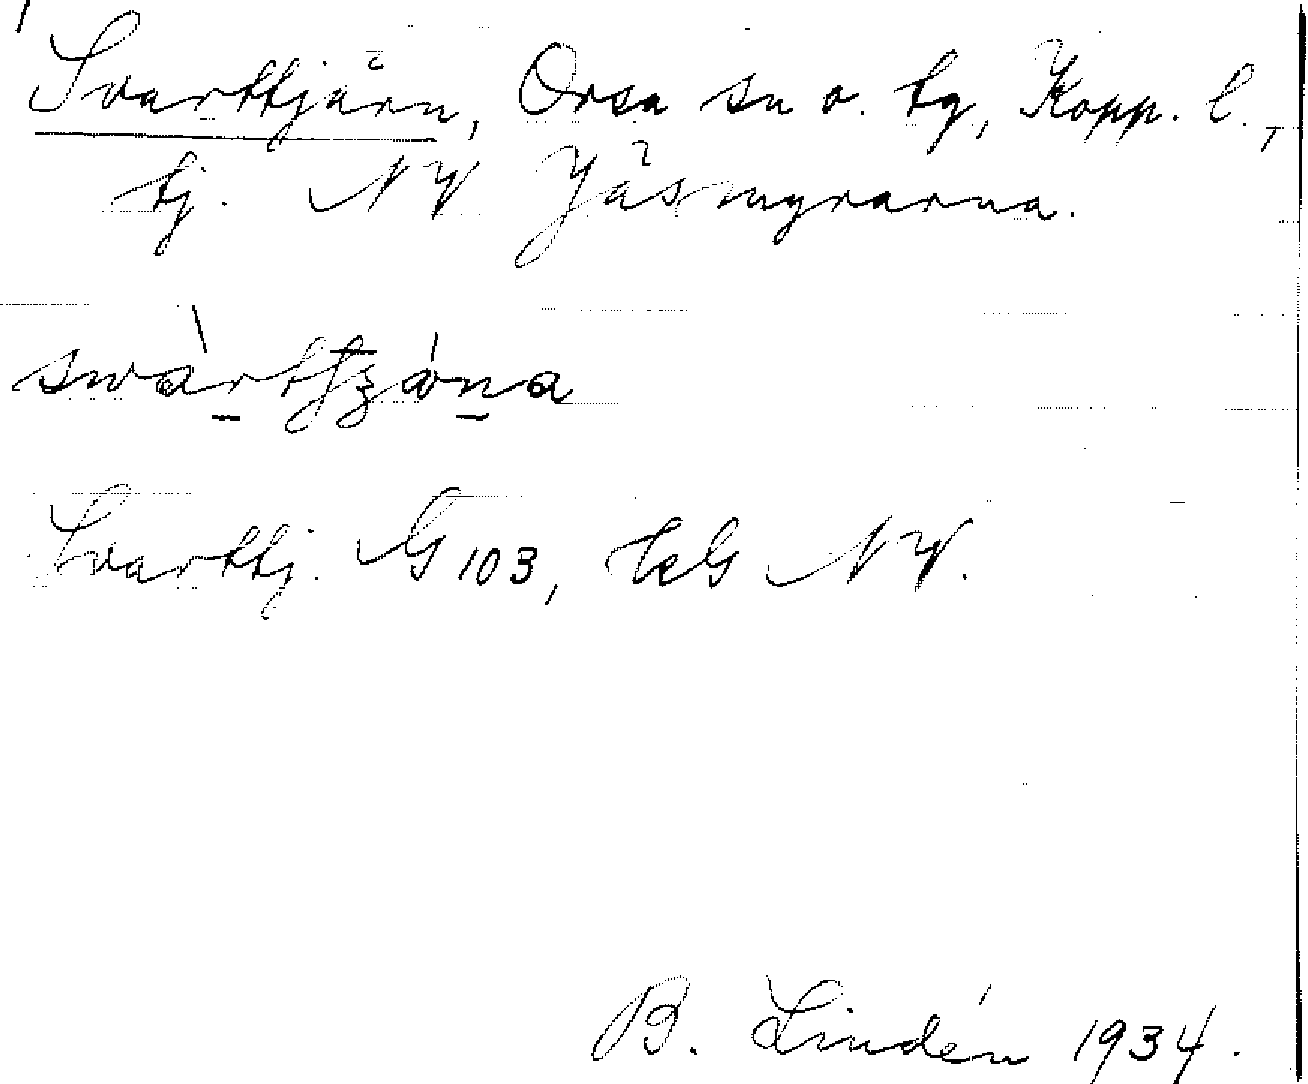 Svarttjärn, Orsa sn o. tg, Kopp. l.,
tj. NV Jäsmyrarna.
Svarttj. G 103, EkG NV.
B. Lindén 1934.